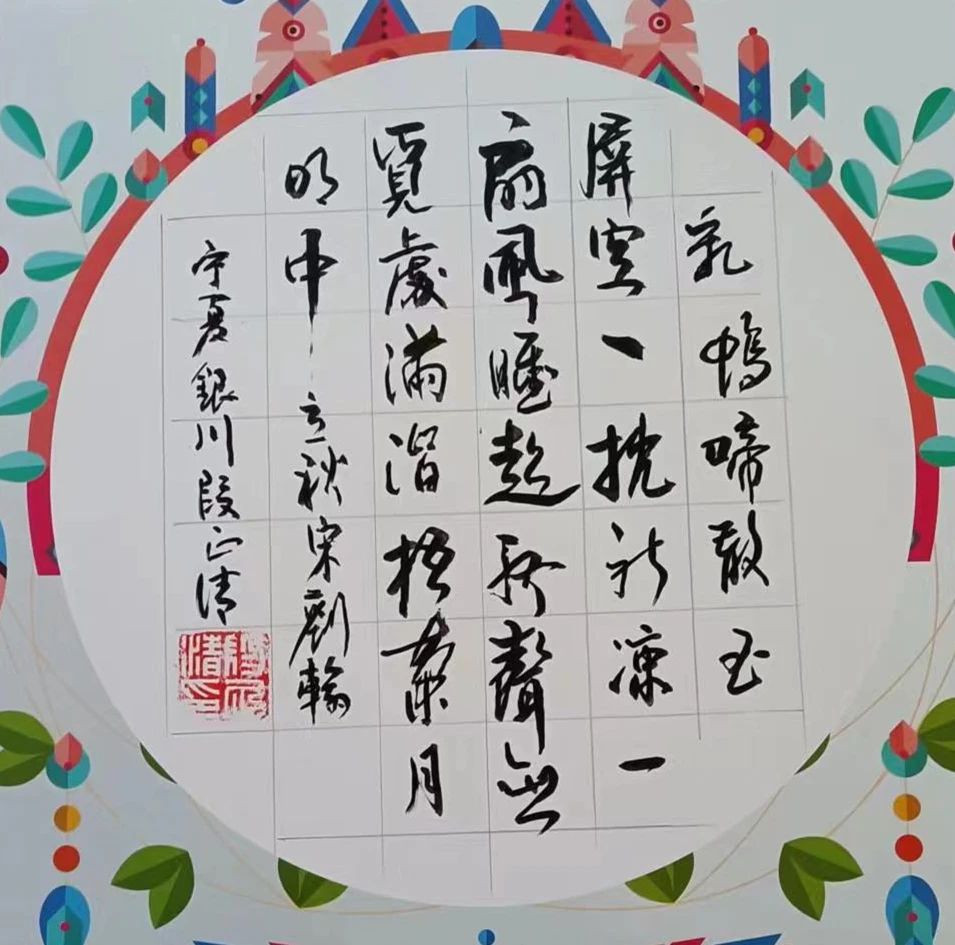 乳鴉啼散玉
屏空一枕新涼一
扇風睡起秋聲無
覓處滿階梧葉月
明中 立秋宋劉翰
宁夏銀川段正清